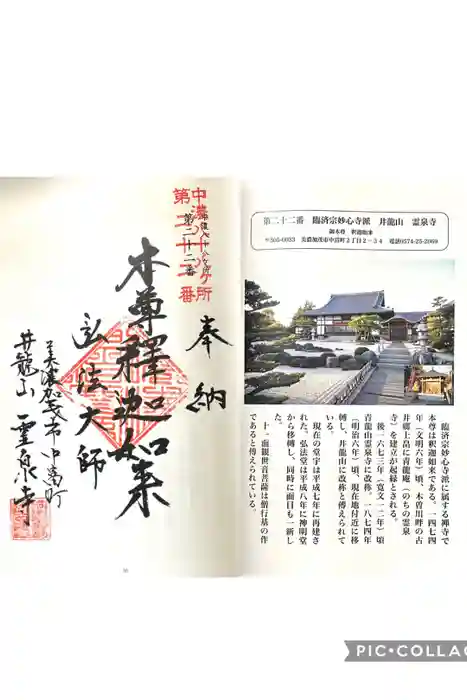 第二十二番　臨済宗妙心寺派　井龍山　霊泉寺
御本尊　釈迦如来
〒505-0033　美濃加茂市中富町2丁目2−34　電話0574-25-2069
臨済宗妙心寺派に属する禅寺で
本尊は釈迦如来である。一四七四
年（文明六年）頃、木曽川畔の古
井郷上畠に青龍庵（のちの霊泉
寺）を建立が起縁とされる。
後一六七三年（寛文一二年）頃
青龍山霊泉寺に改称。一八七四年
（明治六年）頃、現在地付近に移
転し、井龍山に改称と傳えられて
いる。
現在の堂宇は平成七年に再建さ
れた。弘法堂は平成八年に神明堂
から移転し、同時に面目も一新し
た。
十一面観世音菩薩は僧行基の作
であると傳えられている。
奉納
中濃八十八ヶ所
第二十二番
第二十二番
本尊釋迦如来
弘法大師
美濃加茂市中富町
井龍山　霊泉寺
PIC•COLLAG